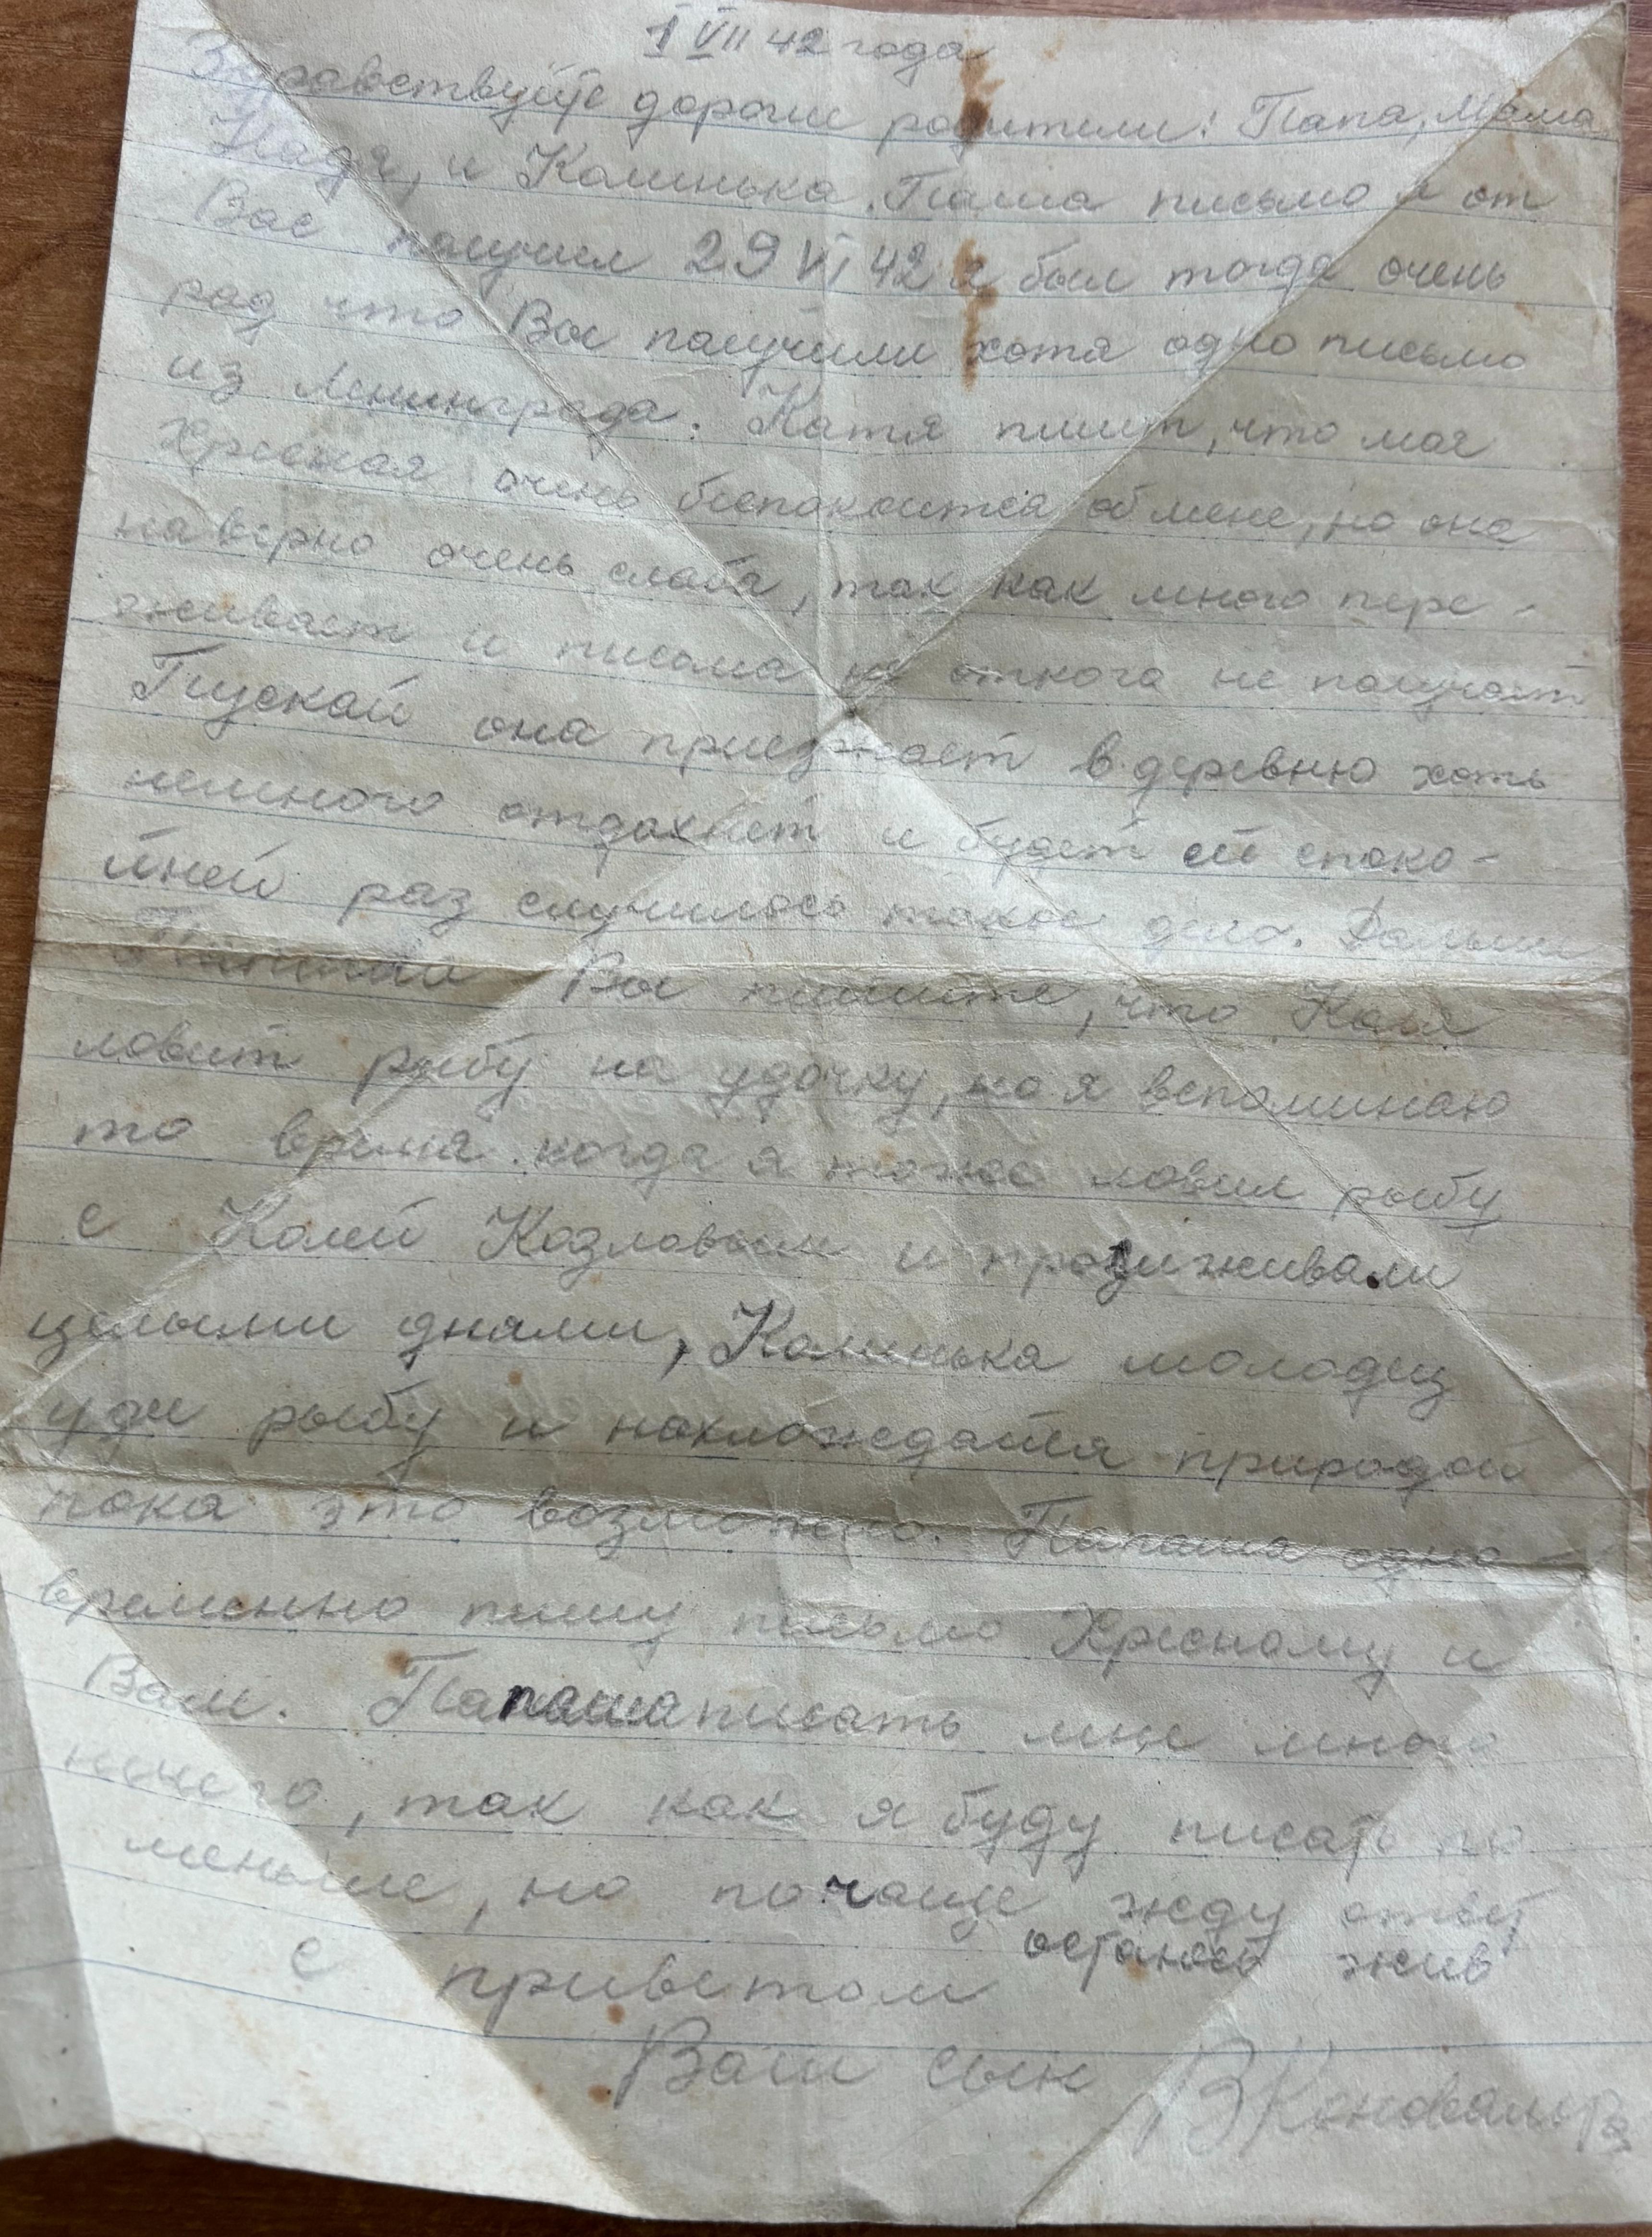 1 VII 42 года
Здравствуйте дорогие родители: Папа, Мама
Надя, и Колинька. Папаша письмо я от
Вас получил 29 VI 42 г был тогда очень
рад что Вы получили хотя одно письмо
из Ленинграда. Катя пишит, что моя
Хресная очень беспокоится обмене, но она
наверно очень слаба, так как много пере-
живает и писома не откого не получает
Пускай она приезжает в деревню хоть
немного отдохнет и будет ей споко-
йней раз случилось такое дело. Дальше
Вы пишите, что Коля
ловит рыбу на удочку, но я вспоминаю
то время когда я тоже ловил рыбу
с Колей Козловым и просиживали
целыми днями, Колинька молодец
уди рыбу и наклаждайся природой
пока это возможно. Папаша одно-
временно пишу письмо Хресному и
Вам. Папаша писать мне много
нечего, так как я буду писать по
меньше, но почаще жду ответ
остаюсь жив
с приветом
Ваш сын В Коновалов